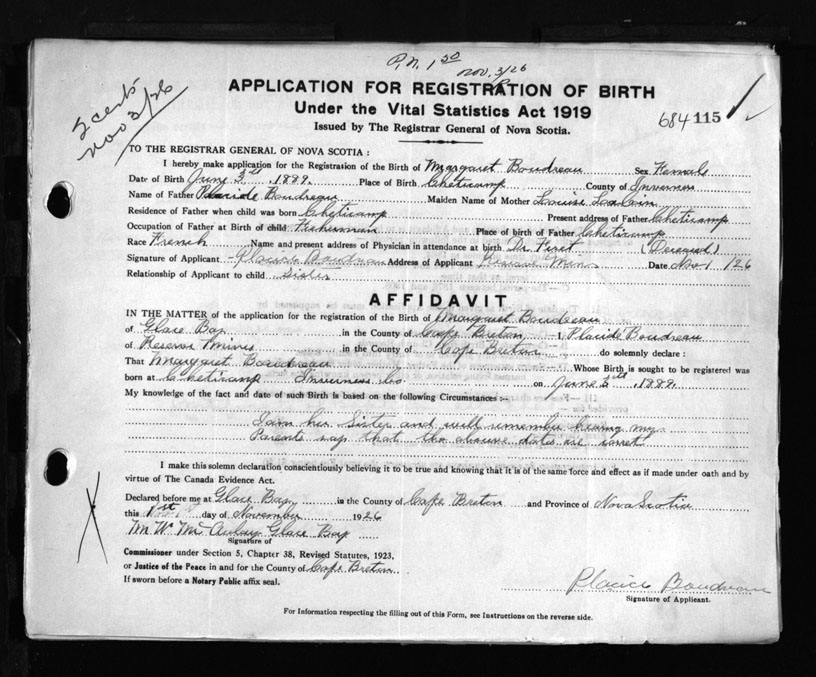 P.N. 1 50
Nov. 3/26
2 certs
Nov 3/26
APPLICATION FOR REGISTRATION OF BIRTH
Under the Vital Statistics Act 1919
Issued by The Registrar General of Nova Scotia.
684 115
TO THE REGISTRAR GENERAL OF NOVA SCOTIA :
I hereby make application for the Registration of the Birth of Margaret Boudreau Sex Female
Date of Birth June 3rd 1889. Place of Birth Cheticamp County of Inverness
Name of Father Placide Boudreau Maiden Name of Mother Louise
Residence of Father when child was born Cheticamp Present address of Father Cheticamp
Occupation of Father at Birth of child Fisherman Place of birth of Father Cheticamp
Race French Name and present address of Physician in attendance at birth Dr. Fiset (Deceased)
Signature of Applicant Placide Boudreau Address of Applicant Reserve Mines Date Nov 1 /26
Relationship of Applicant to child Sister
AFFIDAVIT
IN THE MATTER of the application for the registration of the Birth of Margaret Boudreau
of Glace Bay in the County of Cape Breton I, Placide Boudreau
of Reserve Mines in the County of Cape Breton do solemnly declare :
That Margaret Boudreau Whose Birth is sought to be registered was
born at Cheticamp Inverness Co. on June 3rd, 1889.
My knowledge of the fact and date of such Birth is based on the following Circumstances :-
I am her Sister and well remember hearing my
Parents say that the above dates are corret
I make this solemn declaration conscientiously believing it to be true and knowing that it is of the same force and effect as if made under oath and by
virtue of The Canada Evidence Act.
Declared before me at Glace Bay in the County of Cape Breton and Province of Nova Scotia
this 1st day of November 1926
M. W. McAulay Glace Bay
Signature of
Commissioner under Section 5, Chapter 38, Revised Statutes, 1923,
or Justice of the Peace in and for the County of Cape Breton
If sworn before a Notary Public affix seal.
Placide Boudreau
Signature of Applicant.
For Information respecting the filling out of this Form, see Instructions on the reverse side.